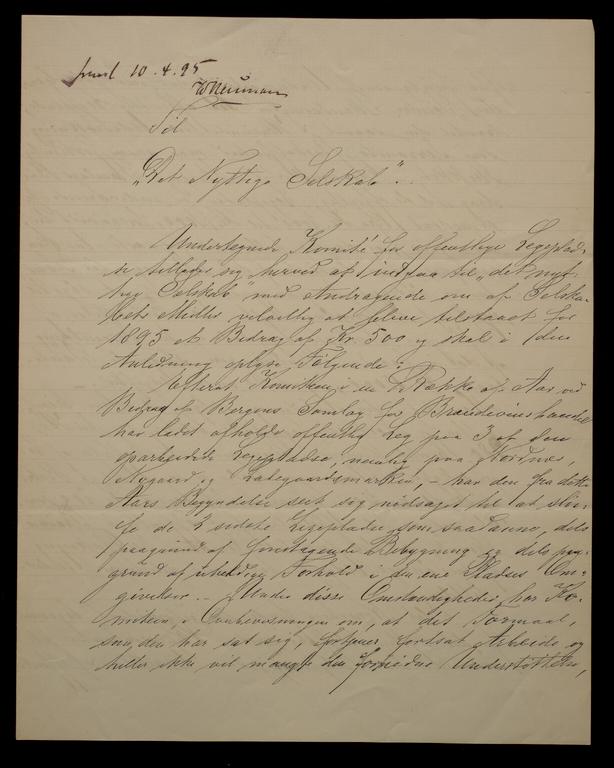 10.4.95
WNeumann
Til
"Det Nyttige Selskab".
Undertegnede Komité for offentlige Legeplad-
se tillader sig herved at indgaa til "det nyt-
tige Selskab" med Andragende om af Selska-
bets Midler velvilligt at blive tilstaaet for
1895 et Bidrag af Kr 500 og skal i den
Anledning oplyse Følgende:
Efterat Komiteen i en Række af Aar ved
Bidrag af Bergens Samlag for Brændevinshandel
har ladet afholde offentlig Leg paa 3 af den
oparbeidede Legepladse, nemlig paa Nordnæs,
Nygaard og Ladegaardsmarken, - har den fra dette
Aars Begyndelse seet sig nødsaget til at sløi-
fe de 2 sidste Legepladse som saadanne, dels
paagrund af foretagende Bebygning og dels paa-
grund af uheldige Forhold i den ene Plads's Om-
givelser. - Under disse Omstændigheder har Ko-
mitéen, i Overbevisningen om, at det Formaal,
som den har sat sig, fortjener fortsat Arbeide og
heller ikke vil mangle den fornødne Understøttelse,